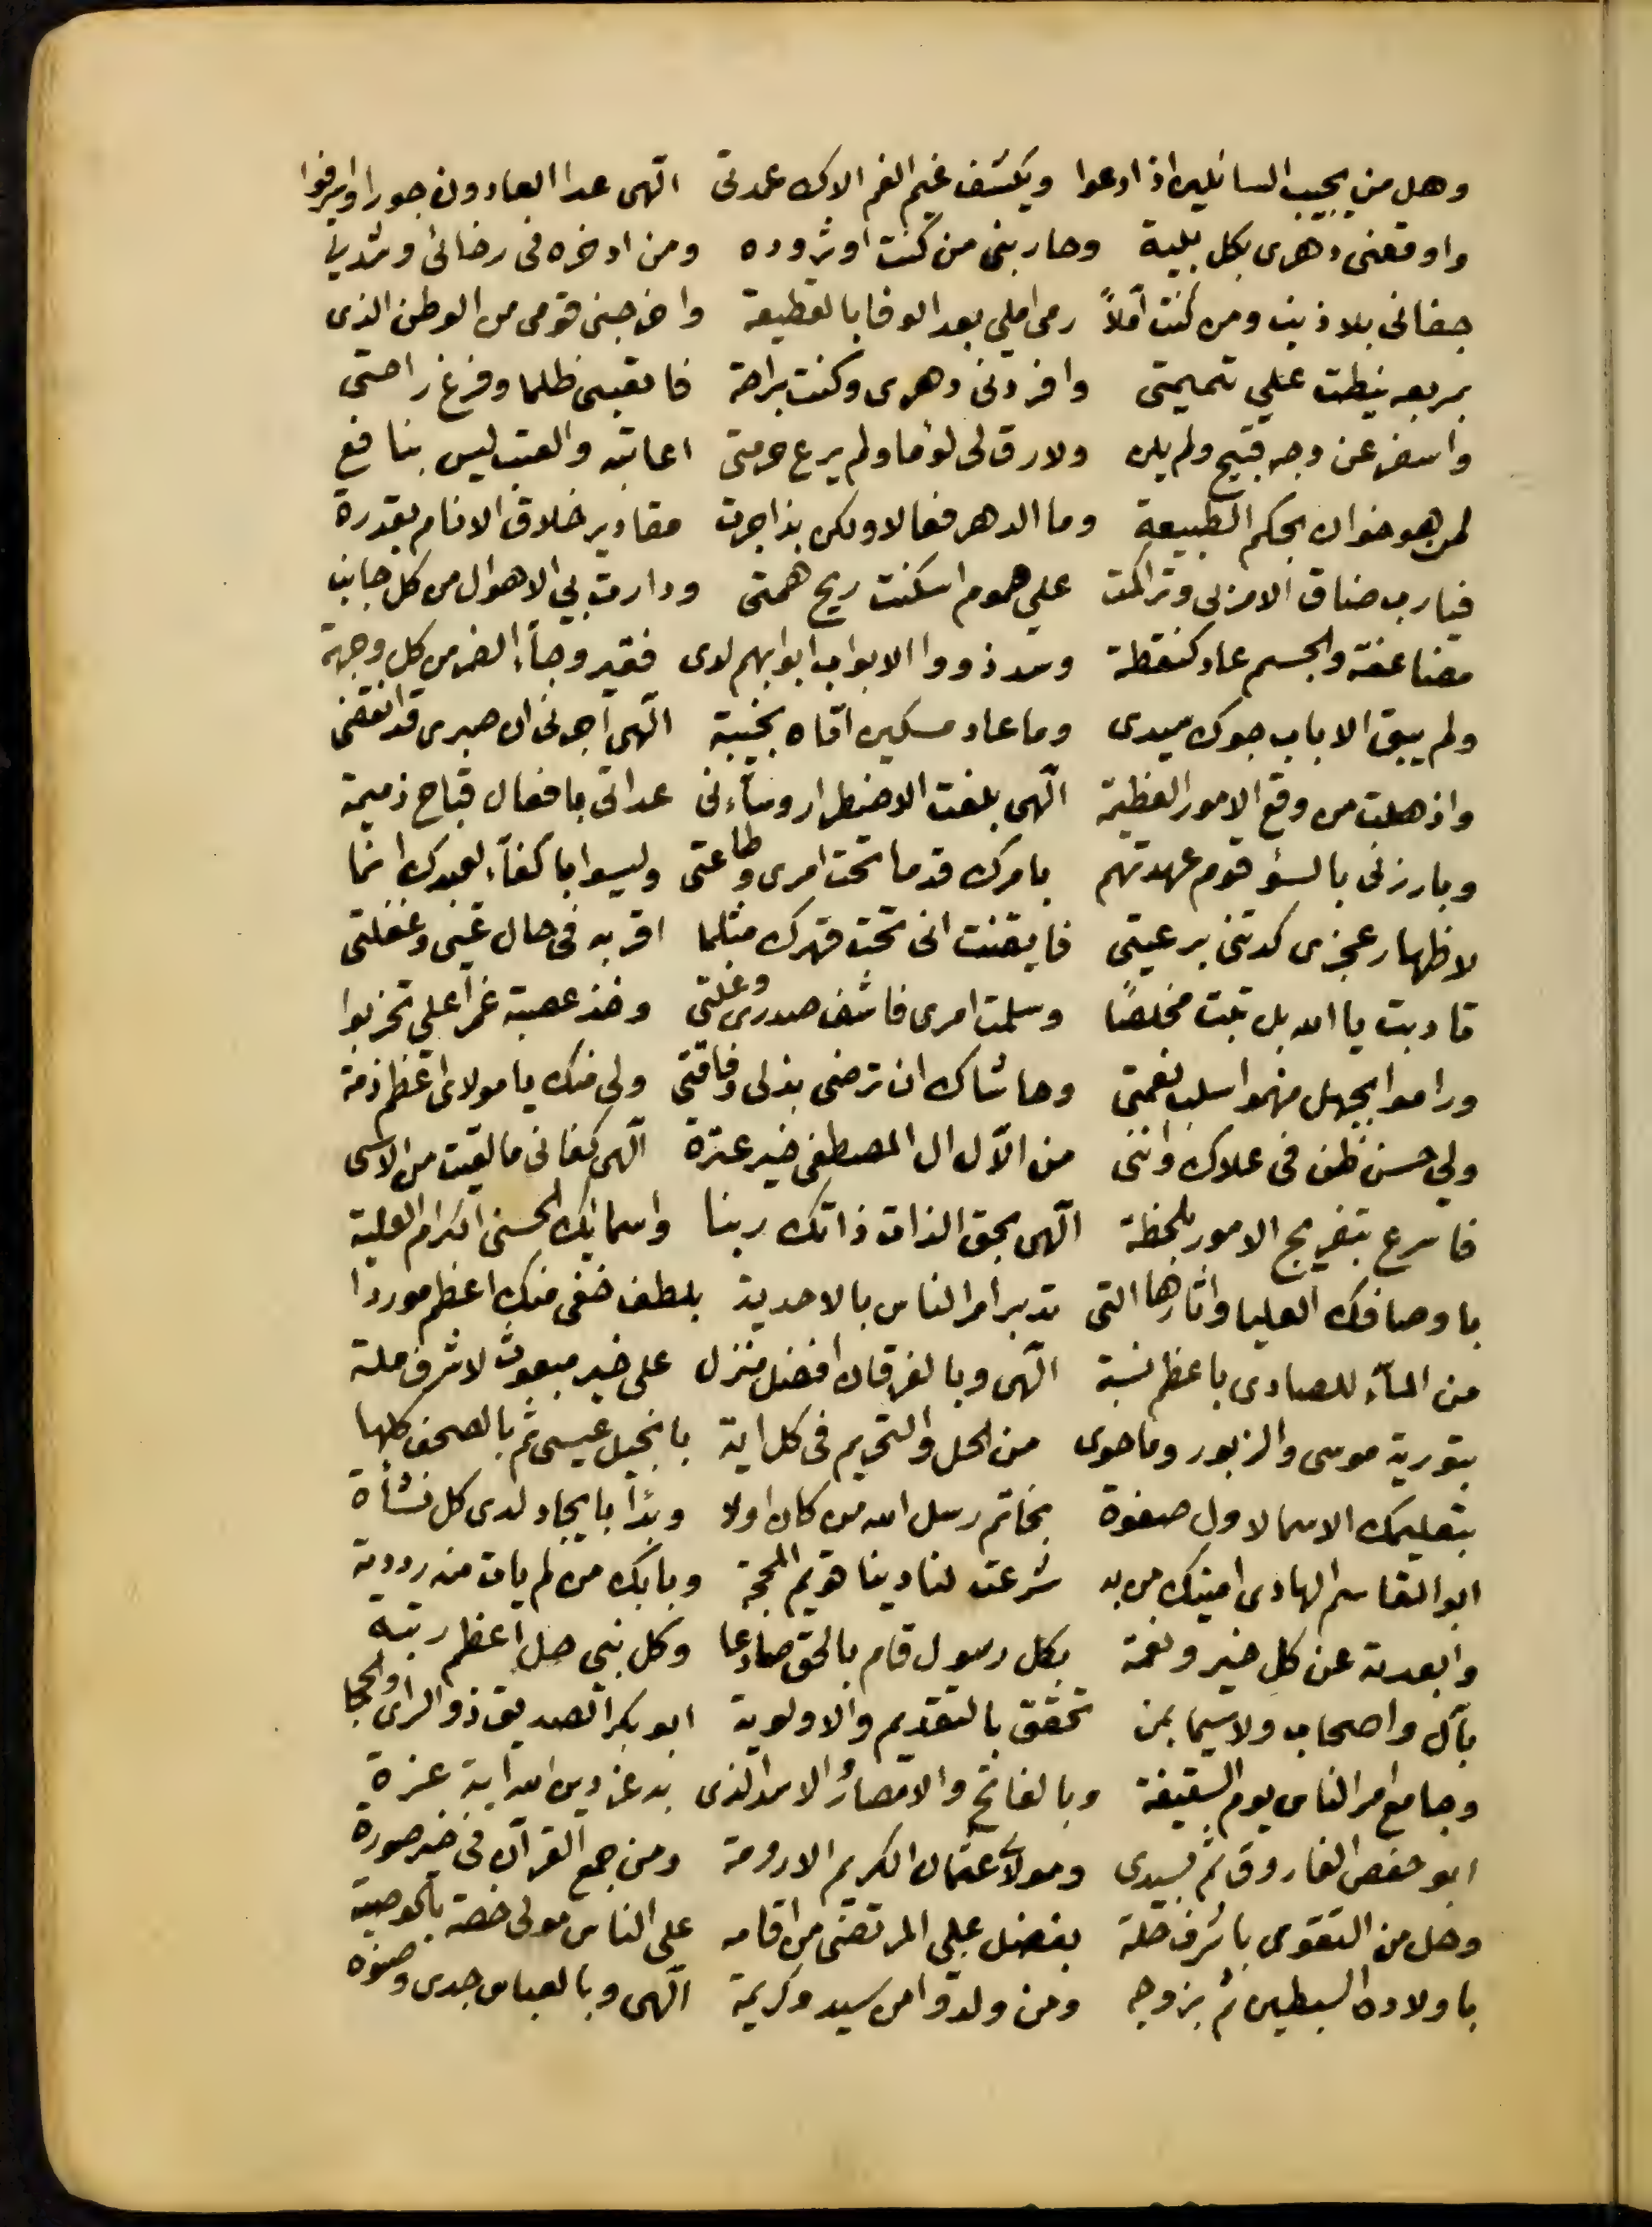 وهل من يجيب السائلين اذا دعوا ويكشف غيم الغم الاك عمدتى الّهى عدا العادون جورا واسرفوا
واوقعنى دهرى بكل بلية وحاربنى من كنت اوثر وده ومن ادخره فى رخائى وشدتى
جفانى بلا ذنب ومن كنت آملاً رمى املي بعد الوفا بالقطيعة واخرجنى قومى من الوطن الذى
بربعه نيطت علي تميمتى وافردنى دهرى وكنت براحة فاتعبنى ظلما وفرغ راحتى
واسفر عن وجه قبيح ولم يلن ولا رق لى لؤما ولم يرع حرمتى اعاتبه والعتب ليس بنافع
لمن هو خوان بحكم الطبيعة وما الدهر فعالا ولكن بذا جرت مقادير خلاق الانام بقدرة
فيا رب ضاق الامر بى وتراكمت علي هموم اسكنت ريح همتى ودارت بي الاهوال من كل جانب
مضاعفة والجسم عاد كنقطة وسد ذووا الابواب ابوابهم لدى فقير وجآء الضر من كل وجهة
ولم يبق الا باب جودك سيدى وما عاد مسكين اتاه بخيبة الّهى اجرنى ان صبرى قد انقضى
واذهلت من وقع الامور العظيمة الّهى بلغت الاضطرار وسآءنى عداتى بافعال قباح ذميمة
وبارزنى بالسؤ قوم عهدتهم بامرك قدما تحت امرى وطاعتى وليسوا باكفآء لعبدك انما
لاظهار عجزى كدتنى برعيتى فايقنت انى تحت قهرك مثلما اقر به فى حال غيى وغفلتى
تادبت يا الله بل تبت مخلصًا وسلمت امرى فاشف صدرى وغلتى وخذ عصبة غمرآ علي تحزبوا
وراموا بجهل منهموا سلب نعمتى وحاشاك ان ترضى بذلى وفاقتى ولى منك يا مولاى اعظم ذمة
ولي حسن ظن فى علاك وانى من الآل ال المصطفى خير عترة الّهى كفانى ما لقيت من الاسى
فاسرع بتفريج الامور بلحظة الّهى بحق الذات ذاتك ربنا واسمائك الحسنى الكرام العلية
باوصافك العليا واثارها التى تدبر امر الناس بالاحدية بلطف خفى منك اعظم موردا
من المآء للصادى باعظم نسبة الّهى وبالفرقان افضل منزل على خير مبعوث لاشرف ملة
بتورية موسى والزبور وما حوى من الحل والتحريم فى كل اية بانجيل عيسى ثم بالصحف كلها
بتعليمك الاسما لاول صفوة بخاتم رسل الله من كان اولا وبدأ بايجاد لدى كل نشأة
ابو القاسم الهادى امينك من به شرعت لنا دينا قويم المحجة وبابك من لم يات منه رددته
وابعدته عن كل خير ونعمة بكل رسول قام بالحق صادعا وكل نبى حل اعظم رتبة
بآل واصحاب ولاسيما بمن تحقق بالتقديم والاولوية ابو بكر الصديق ذو الراى والحجا
وجامع امر الناس يوم السقيفة وبالفاتح والامصار الاسد الذى به عز دين الله اية عزة
ابو حفص الفاروق ثم بسيدى ومولاى عثمان الكريم الارومة ومن جمع القرآن فى خير صورة
وحل من التقوى باشرف حلة بفضل علي المرتضى من اقامه على الناس مولى خصه بالوصية
باولاده السبطين ثم بزوجه ومن ولدوا من سيد وكريمة الّهى وبالعباس جدى وصنوه